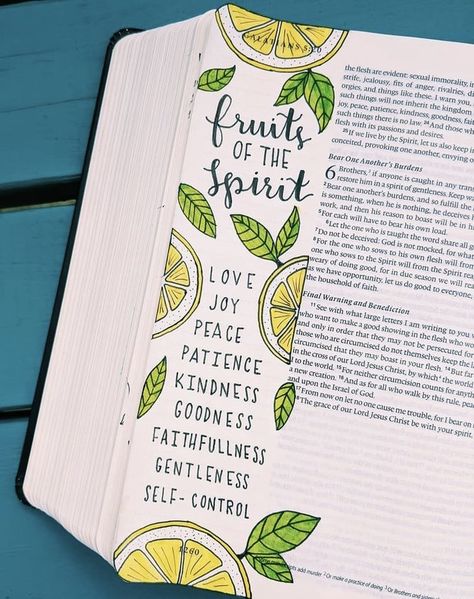 GALATIANS
fruits
OF THE
Spirit
LOVE
JOY
PEACE
PATIENCE
KINDNESS
GOODNESS
FAITHFULLNESS
GENTLENESS
SELF-CONTROL
1260
the flesh are evident: sexual immorality,
strife, jealousy, fits of anger, rivalries,
orgies, and things like these. I warn you,
such things will not inherit the kingdom
joy, peace, patience, kindness, goodness,
such things there is no law. 24 And those
flesh with its passions and desires.
25 If we live by the Spirit, let us also keep
conceited, provoking one another, envying
Bear One Another's Burdens
6 Brothers, if anyone is caught in any
restore him in a spirit of gentleness. Keep
2 Bear one another's burdens, and so fulfill the
is something, when he is nothing, he deceives
work, and then his reason to boast will be in
5 For each will have to bear his own load.
6 Let the one who is taught the word share all
7 Do not be deceived: God is not mocked, for
8 For the one who sows to his own flesh will from
one who sows to the Spirit will from the Spirit
weary of doing good, for in due season we will
as we have opportunity, let us do good to everyone
the household of faith.
Final Warning and Benediction
11 See with what large letters I am writing to you
who want to make a good showing in the flesh who
and only in order that they may not be persecuted
those who are circumcised do not themselves keep the
circumcised that they may boast in your flesh. 14 But far
in the cross of our Lord Jesus Christ, by which the world
to the world. 15 For neither circumcision counts for anything
a new creation. 16 And as for all who walk by this rule,
and upon the Israel of God.
17 From now on let no one cause me trouble, for I bear on
18 The grace of our Lord Jesus Christ be with your spirit,
add murder 2 Or make a practice of doing 3 Or Brothers and